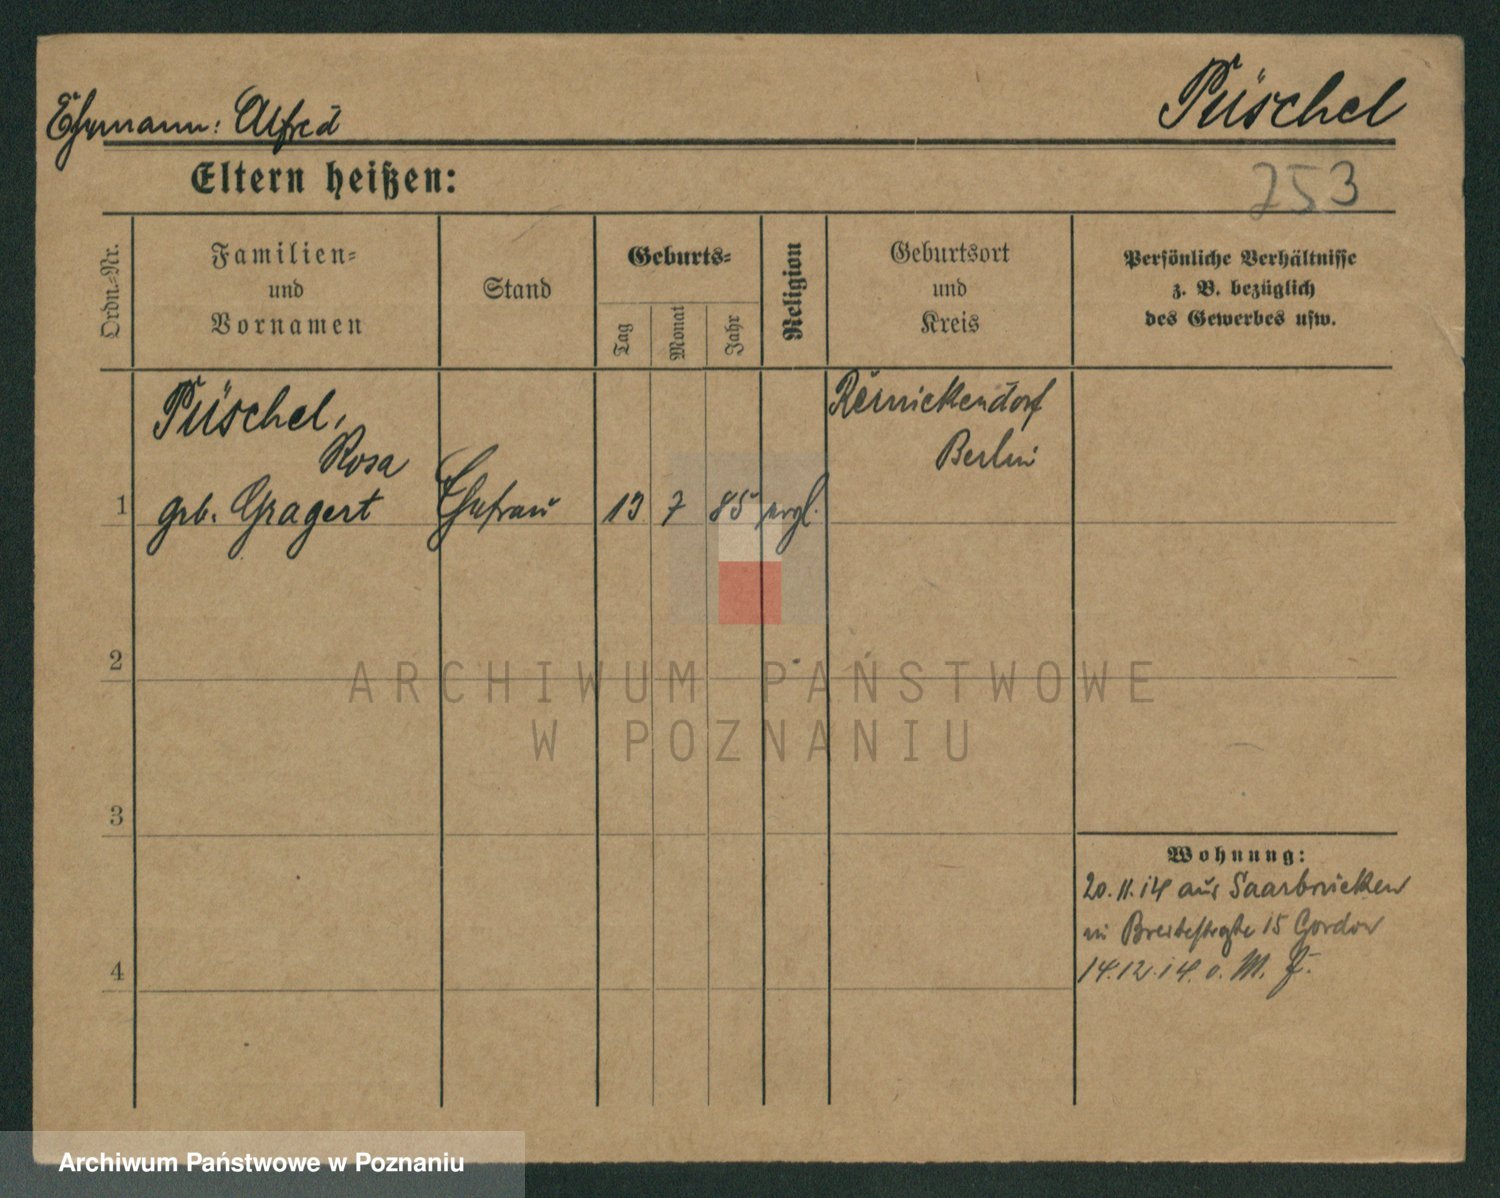 Ehemann: Alfred
Püschel
Eltern heißen:
253
Ordn.-Nr.
Familien-
und
Vornamen
Stand
Geburts-
Tag
Monat
Jahr
Religion
Geburtsort
und
Kreis
Persönliche Verhältnisse
z. B. bezüglich
des Gewerbes usw.
Püschel,
Rosa
1 geb. Gragert Ehefrau 13 7 85 evgl.
Reinickendorf
Berlin
2
ARCHIWUM PAŃSTWOWE
W POZNANIU
3
Wohnung:
20.11.14 aus Saarbrücken
in Breitestraße 15 Gordon
4
14.12.14. v. M.
Archiwum Państwowe w Poznaniu